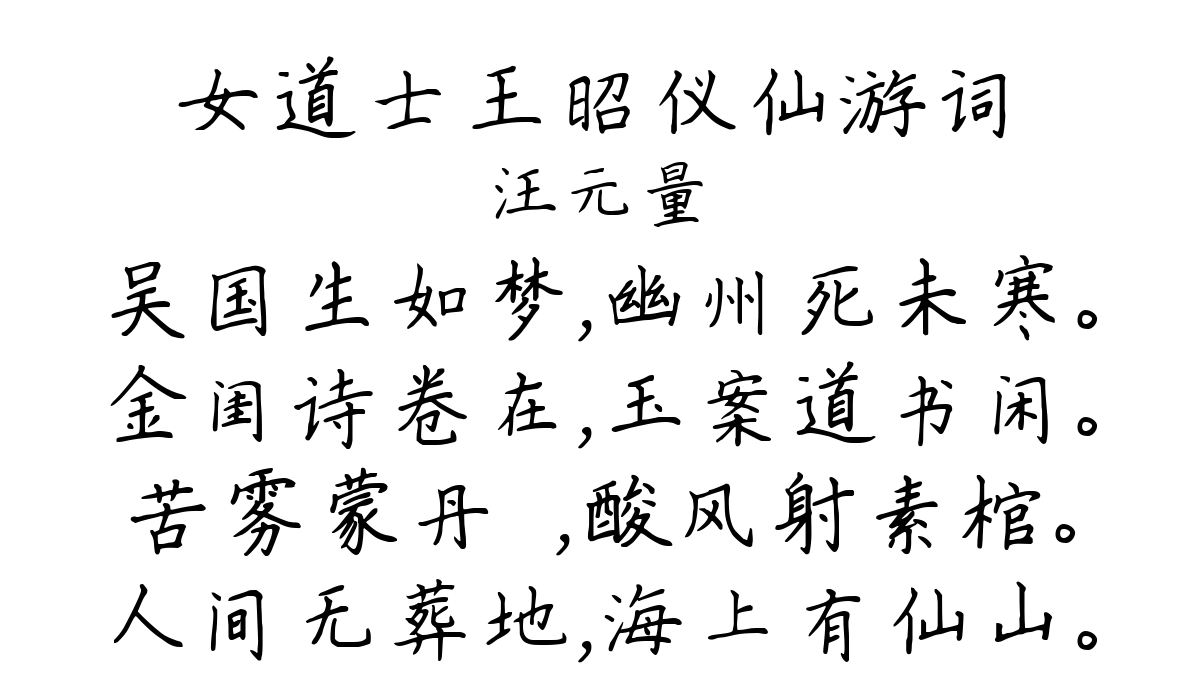 女道士王昭仪仙游词
汪元量
吴国生如梦,幽州死未寒。
金闺诗卷在,玉案道书闲。
苦雾蒙丹 ,酸风射素棺。
人间无葬地,海上有仙山。